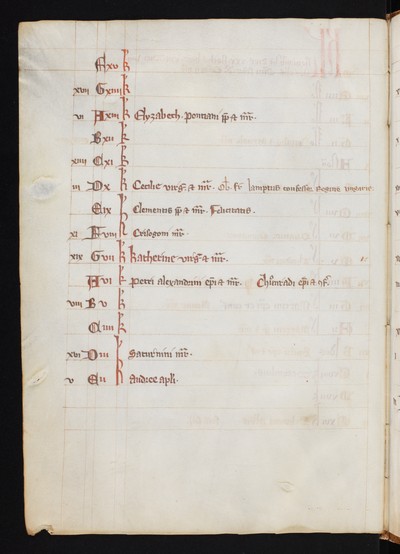 F xv k
xvii G xiiii k
vi A xiii k Elyzabech. Ponciani pp et mr.
B xii k
xiiii C xi k
iii D x k Cecilie virg et mr.
E ix k Clementis pp et mr. Felicitatis.
xi F viii k Crisogoni mr.
xix G vii k katherine virg et mr.
A vi k Petri alexandrini epi et mr. Chunradi epi et cf.
viii B v k
C iiii k
xvi D iii k Saturnini mr.
v E ii k Andree apli.